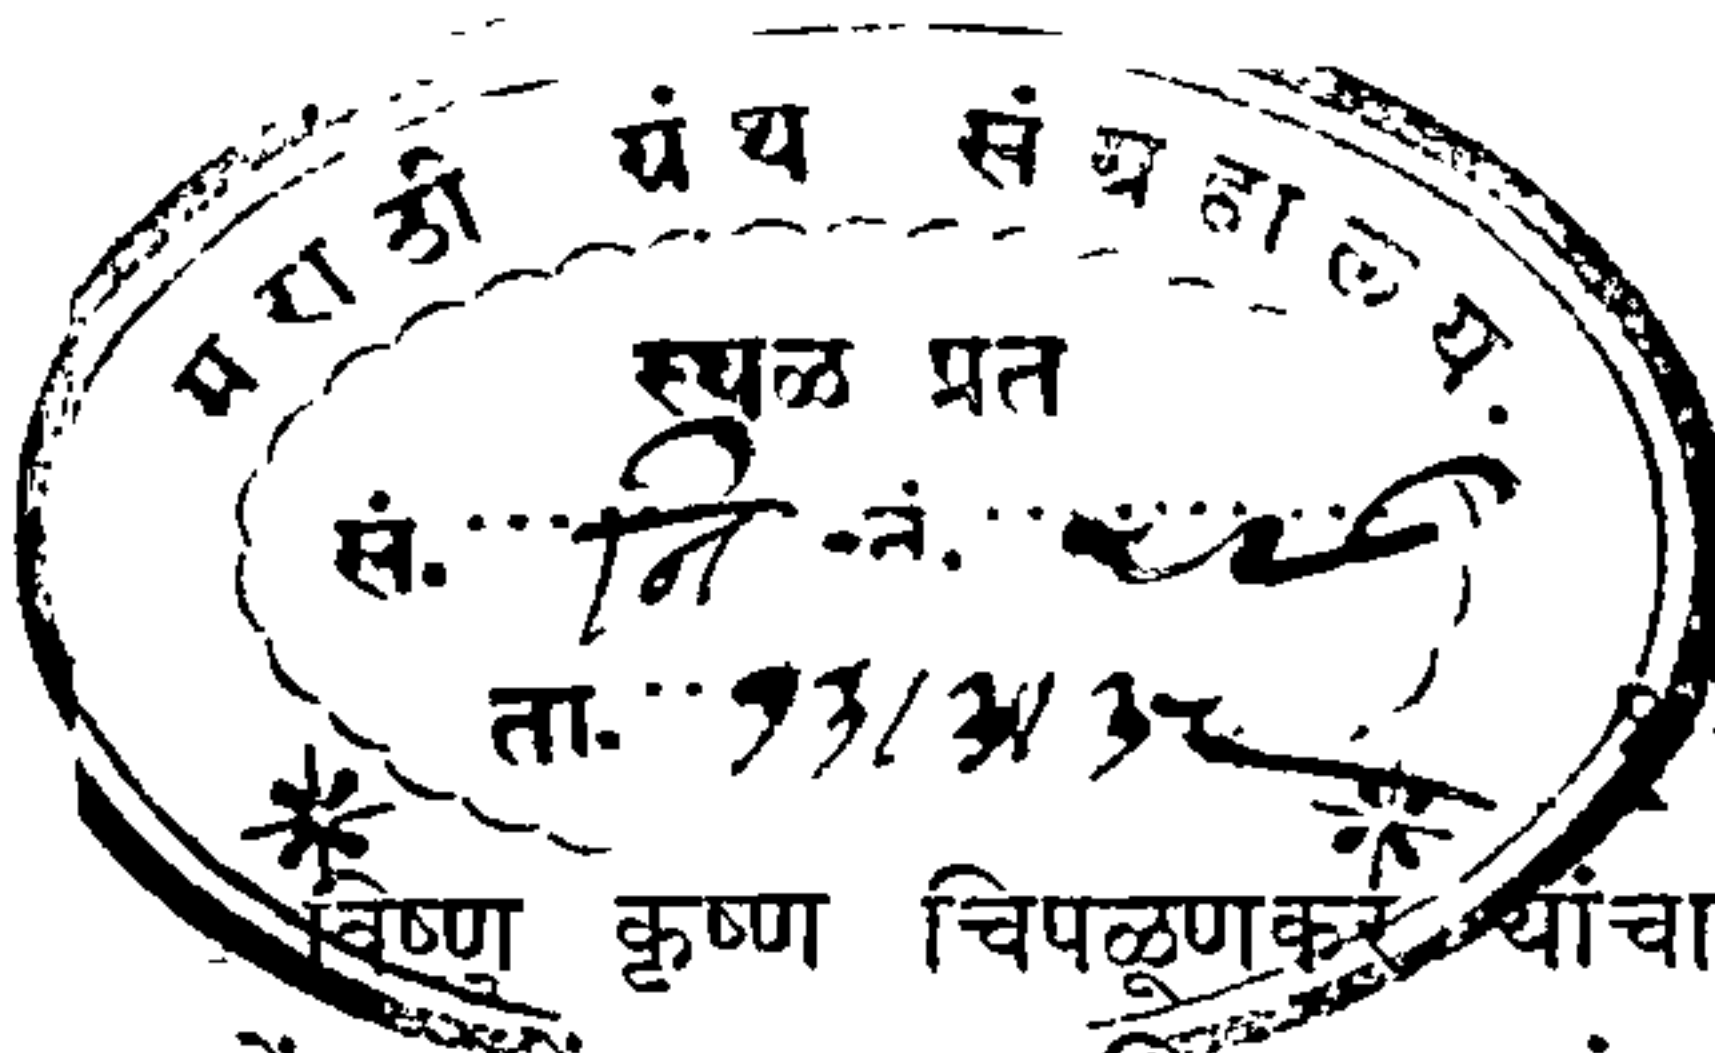 मराठी ग्रंथ संग्रहालय.
स्थळ प्रत
सं. नि नं.
ता. १३/३/३
विष्णु कृष्ण चिपळूणकर यांचा